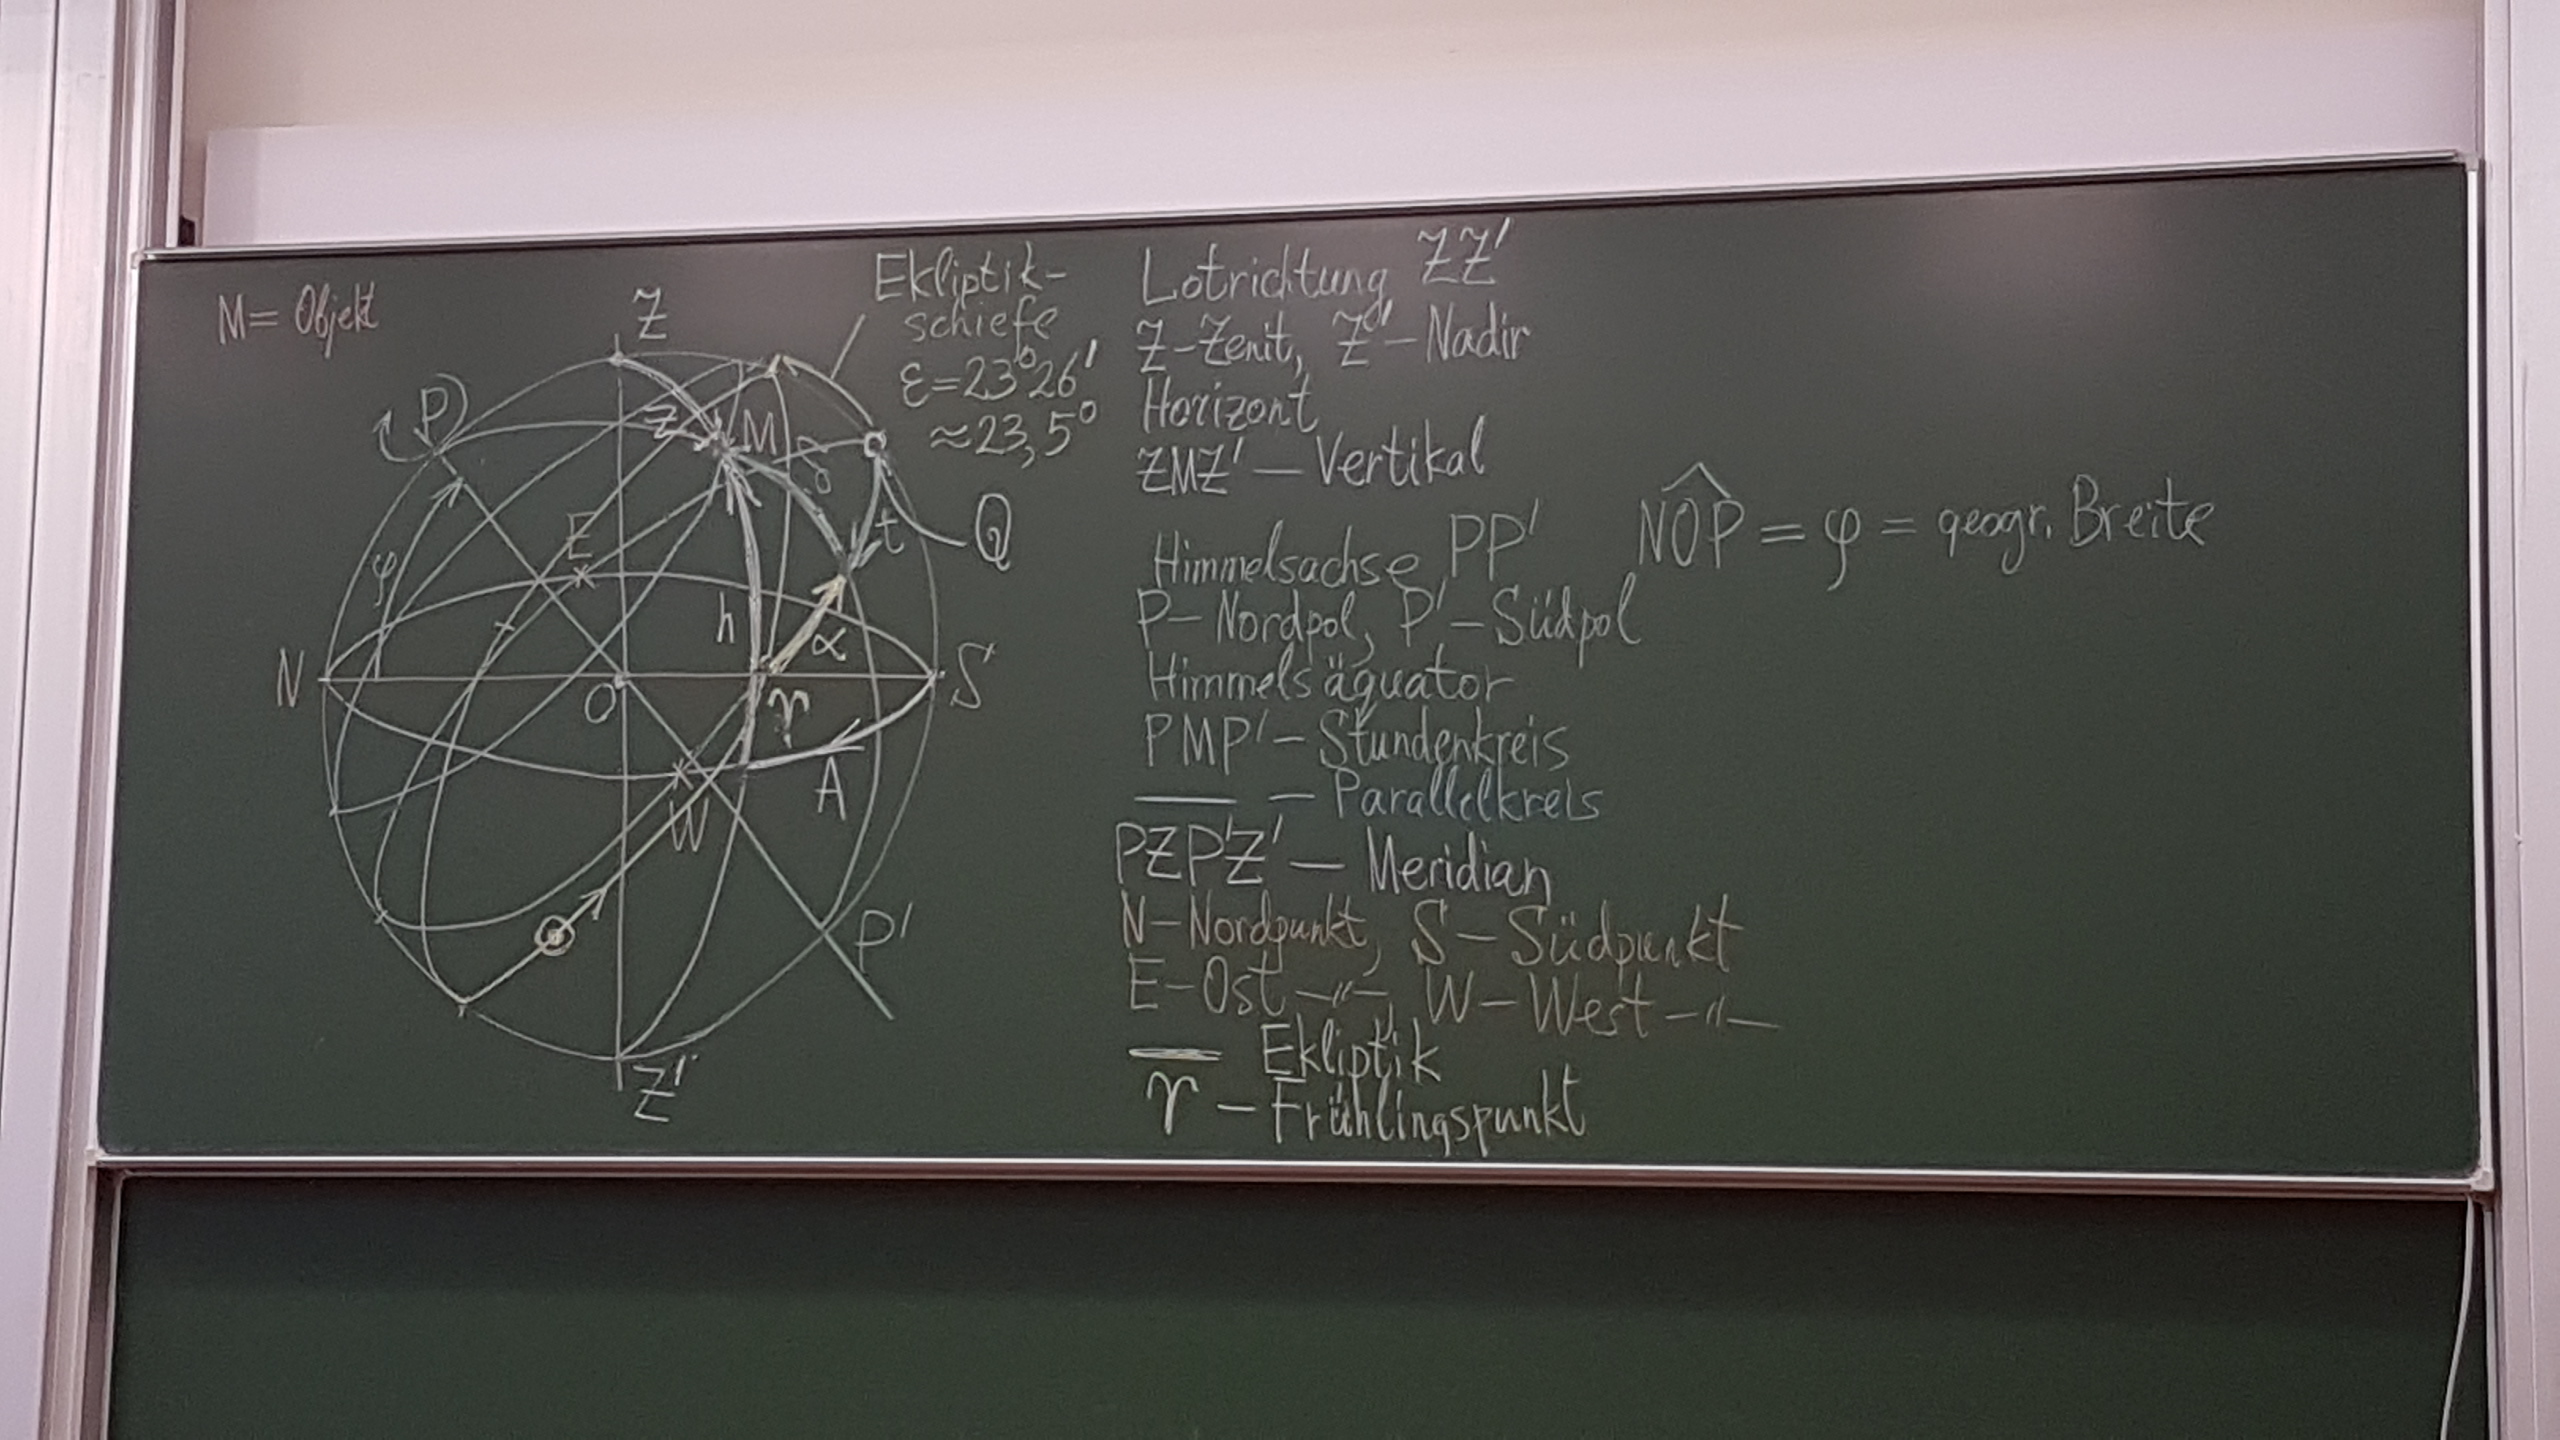 M = Objekt
Z
Ekliptik-
schiefe
ε=23°26'
≈23,5°
P
z
M
δ
E
t
Q
φ
h
α
N
O
♈
S
A
W
P'
Z'
Lotrichtung ZZ'
Z-Zenit, Z'-Nadir
Horizont
ZMZ' — Vertikal
Himmelsachse PP'
P-Nordpol, P'-Südpol
Himmelsäquator
PMP' - Stundenkreis
— - Parallelkreis
PZP'Z' — Meridian
N-Nordpunkt, S-Südpunkt
E-Ost -〃-, W-West -〃-
— Ekliptik
♈ - Frühlingspunkt
NOP = φ = geogr. Breite